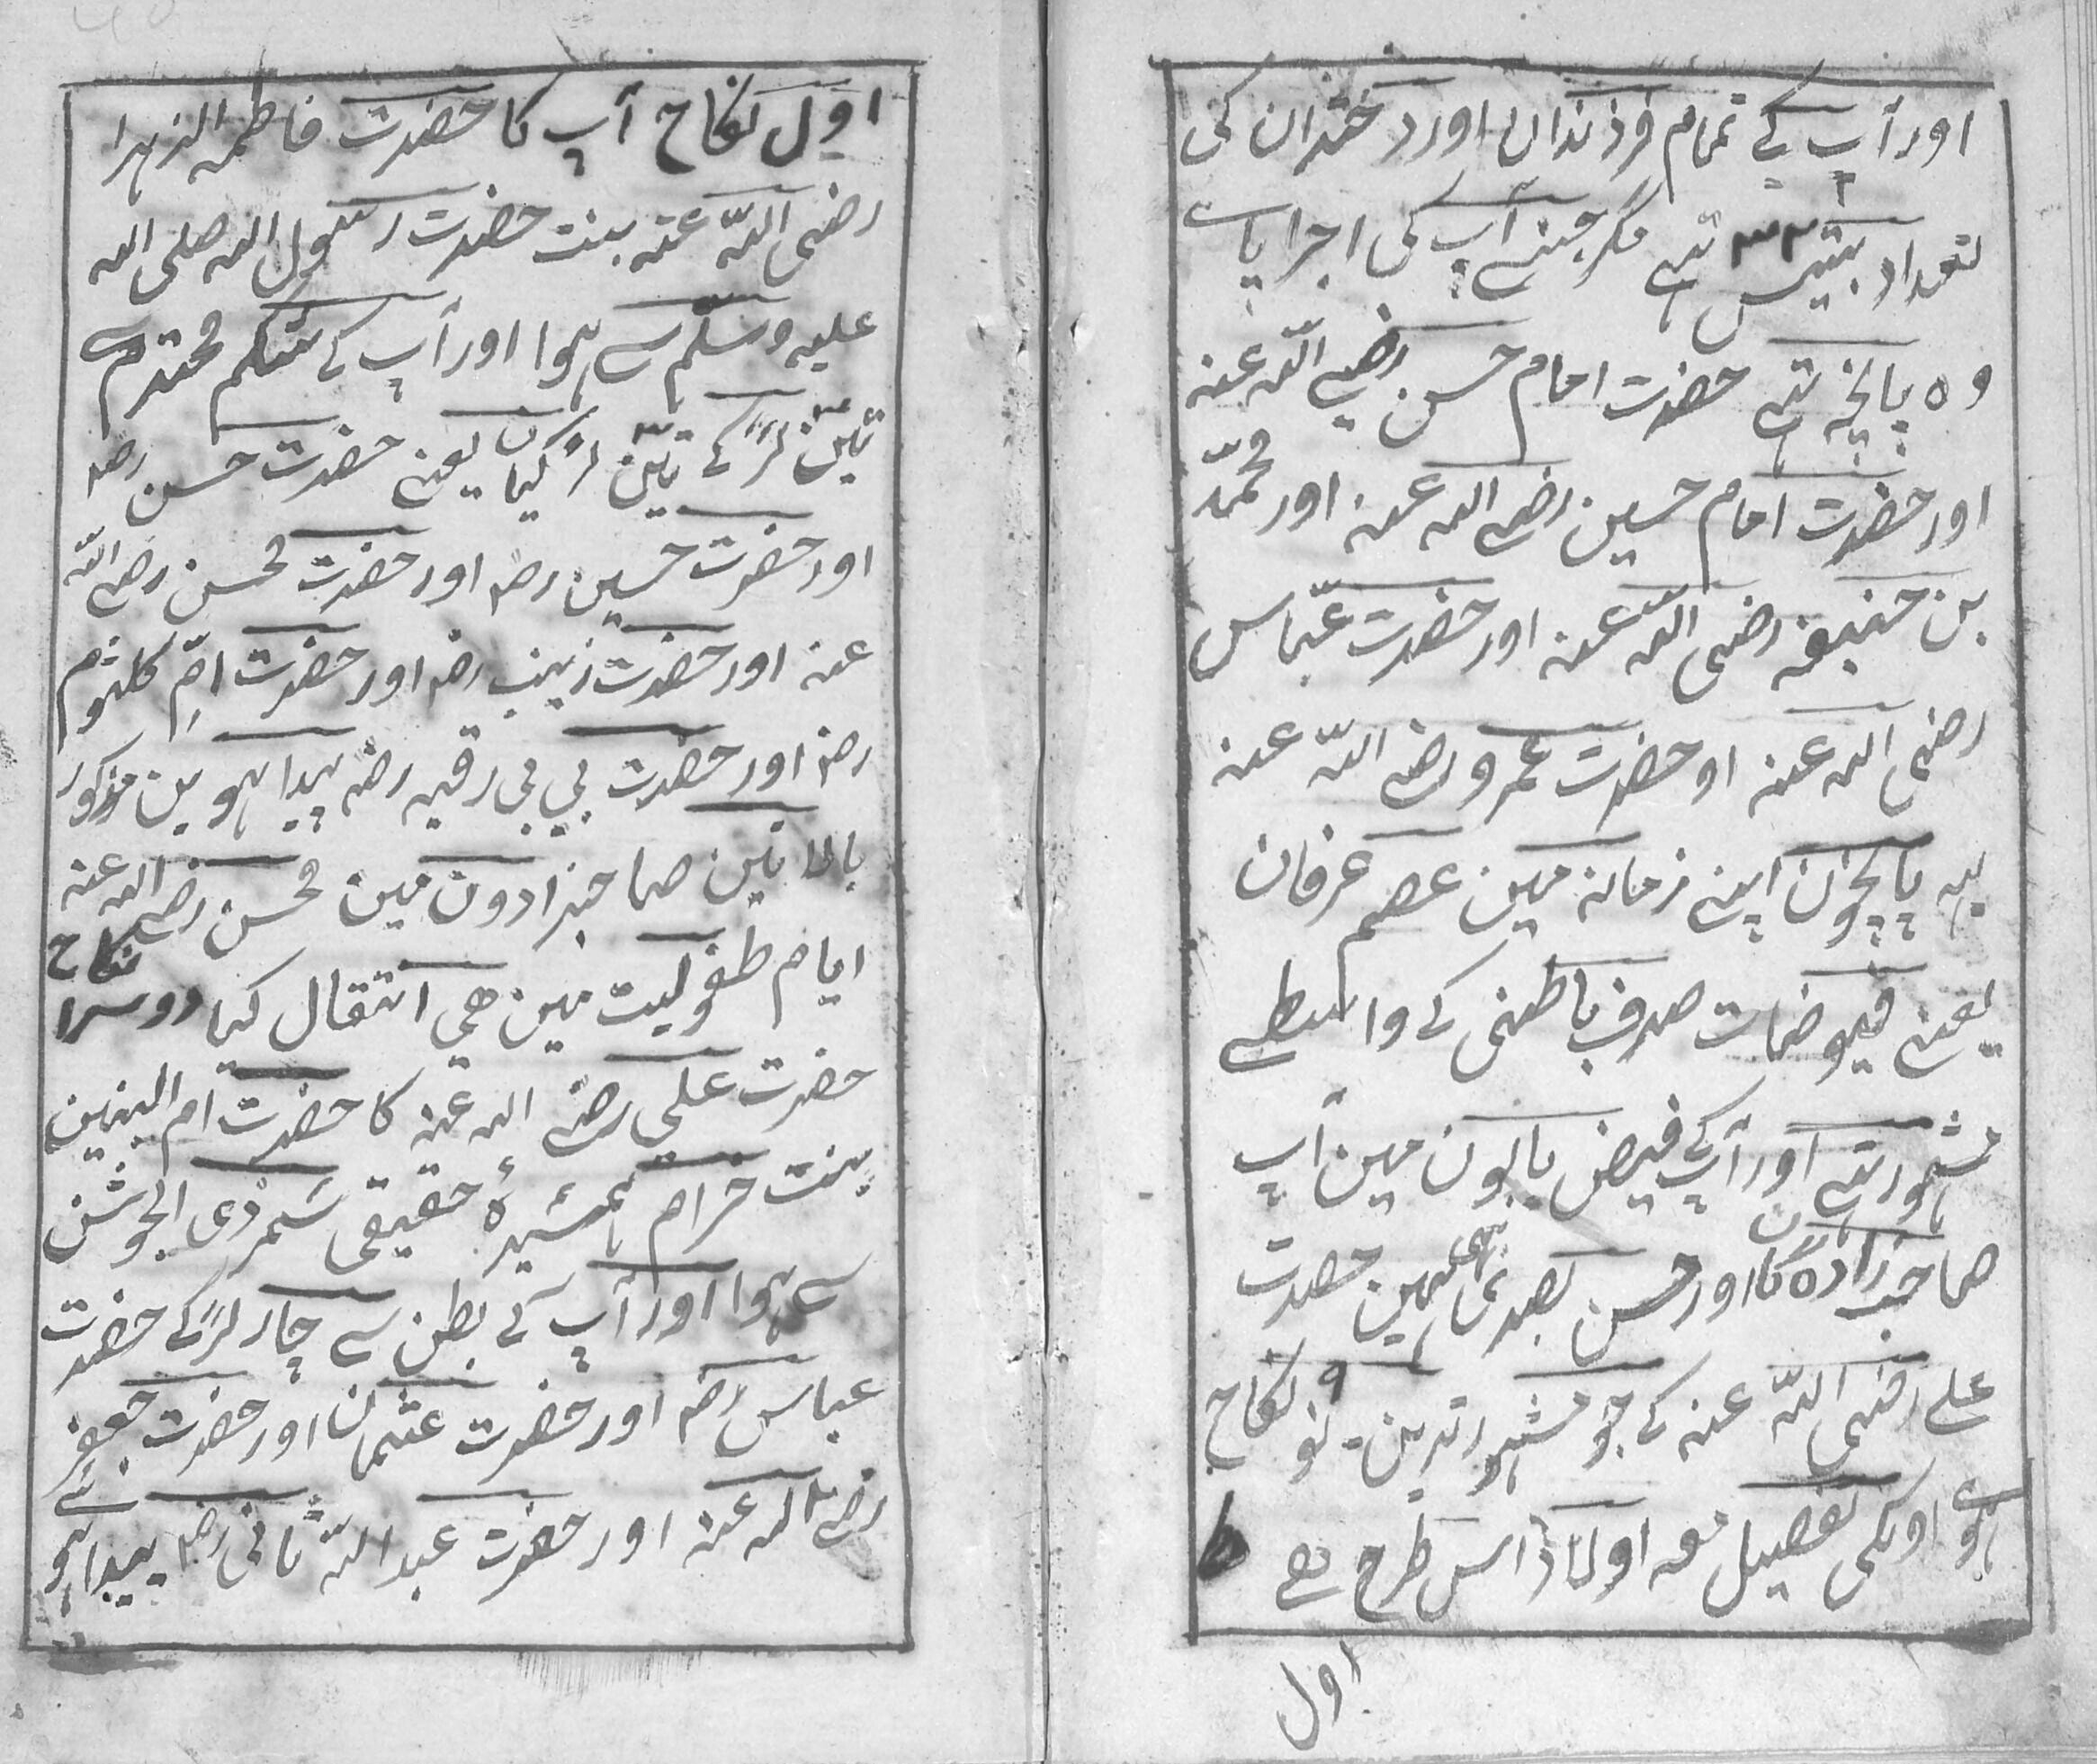 اور آپ کے تمام فرزندان اور دختران کی
تعداد بتیس ۳۲ تہے مگر جنسے آپ کی اجرایات
وہ پانچ تہے حضرت امام حسن رضی اللہ عنہ
اور حضرت امام حسین رضی اللہ عنہ اور محمّد
بن حنیفہ رضی اللہ عنہ اور حضرت عبّاس
رضی اللہ عنہ او حضرت عمرو رضی اللہ عنہ
یہہ پانچون اپنے زمانہ مین عصم عرفان
یعنے فیوضات صرف باطنی کے واسطے
مشہور تہے اور آپ کے فیض یابون مین آپ
صاحبزادہ کا اور حسن بصری بہی ہین حضرت
علے رضی اللہ عنہ کے جو مشہور ترین۔ نو ۹ نکاح
ہوے اونکی تفصیل معہ اولاد اس طرح ھے
اول
اول نکاح آپ کا حضرت فاطمہ الزہرا
رضی اللہ عنہ بنت حضرت رسول اللہ صلی اللہ
علیہ وسلّم سے ہوا اور آپ کے شکم محترم سے
تین لڑکے تین لڑکیاں یعنے حضرت حسن رضہ
اور حضرت حسین رضہ اور حضرت محسن رضے اللہ
عنہ اور حضرت زینب رضہ اور حضرت امِّ کلثوم
رضہ اور حضرت بی بی رقیہ رضہ پیدا ہوین مذکور
بالا تین صاحبزادون مین محسن رضے اللہ عنہ
ایام طفولیت مین ھی انتقال کیا دوسرا نکاح
حضرت علی رضے اللہ عنہ کا حضرت ام البنین
بنت حرام ہمشیرۂ حقیقی شمر ذی الجوشن
سے ہوا اور آپ کے بطن سے چار لڑکے حضرت
عباس رضہ اور حضرت عثمان اور حضرت جعفر
رضے اللہ عنہ اور حضرت عبد اللہ ثانی رضہ پیدا ہوئے